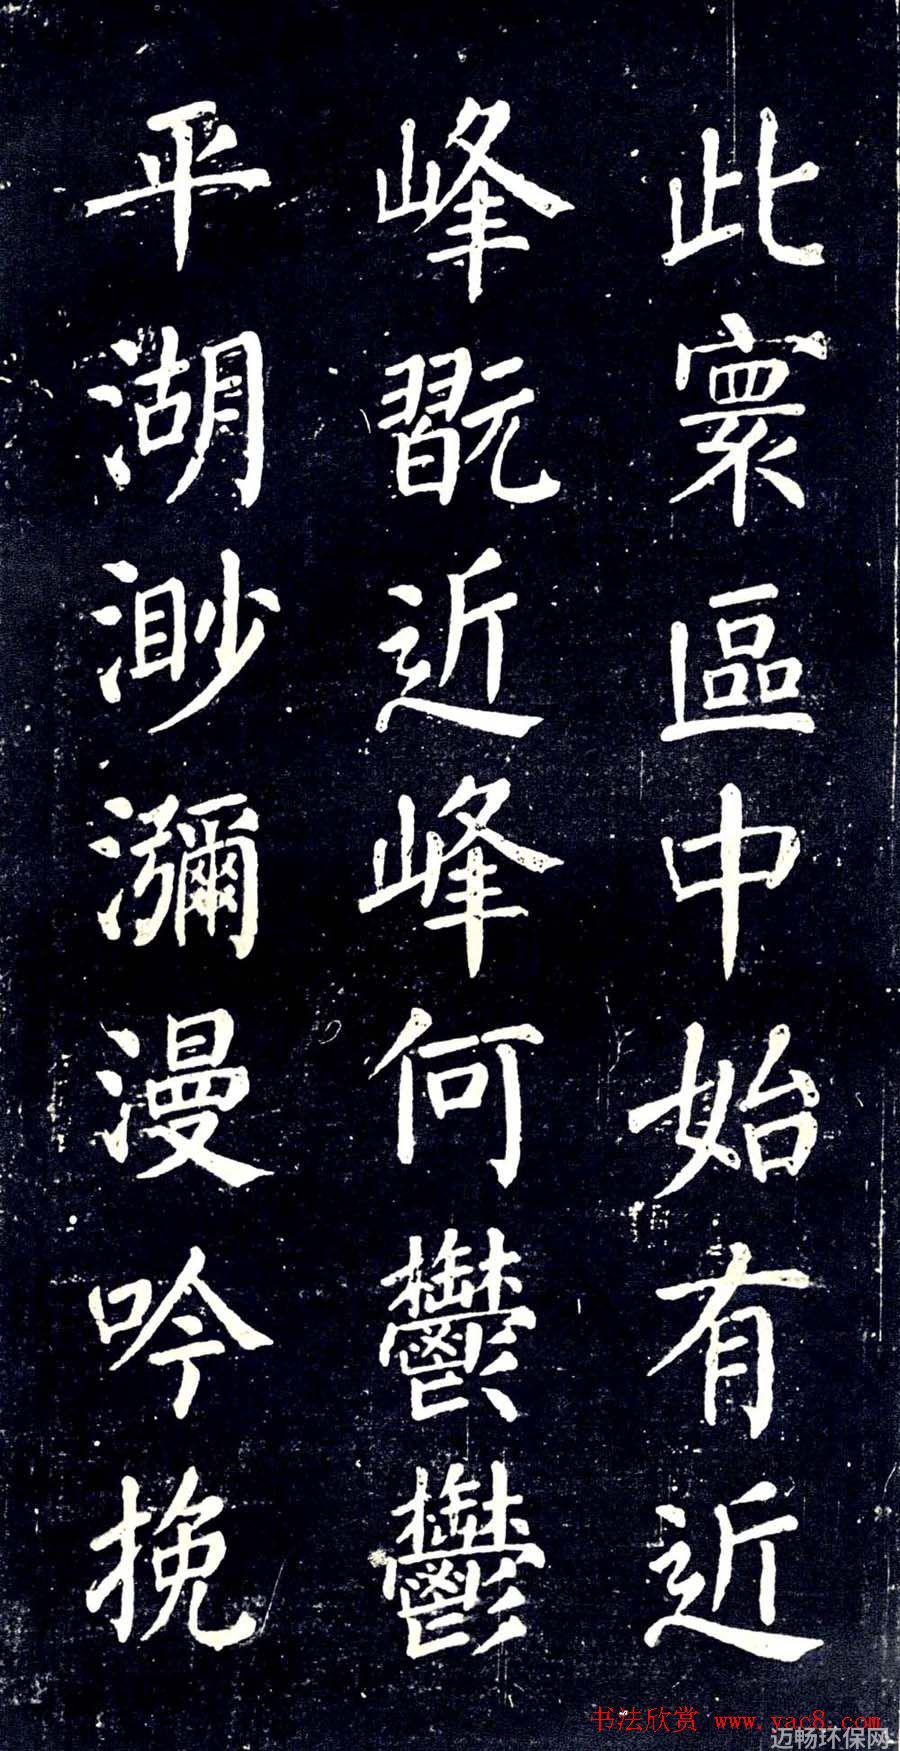 此寰區中始有近
峰翫近峰何鬱鬱
平湖渺瀰漫吟挽
书法欣赏 www.yac8.com
迈畅环保网